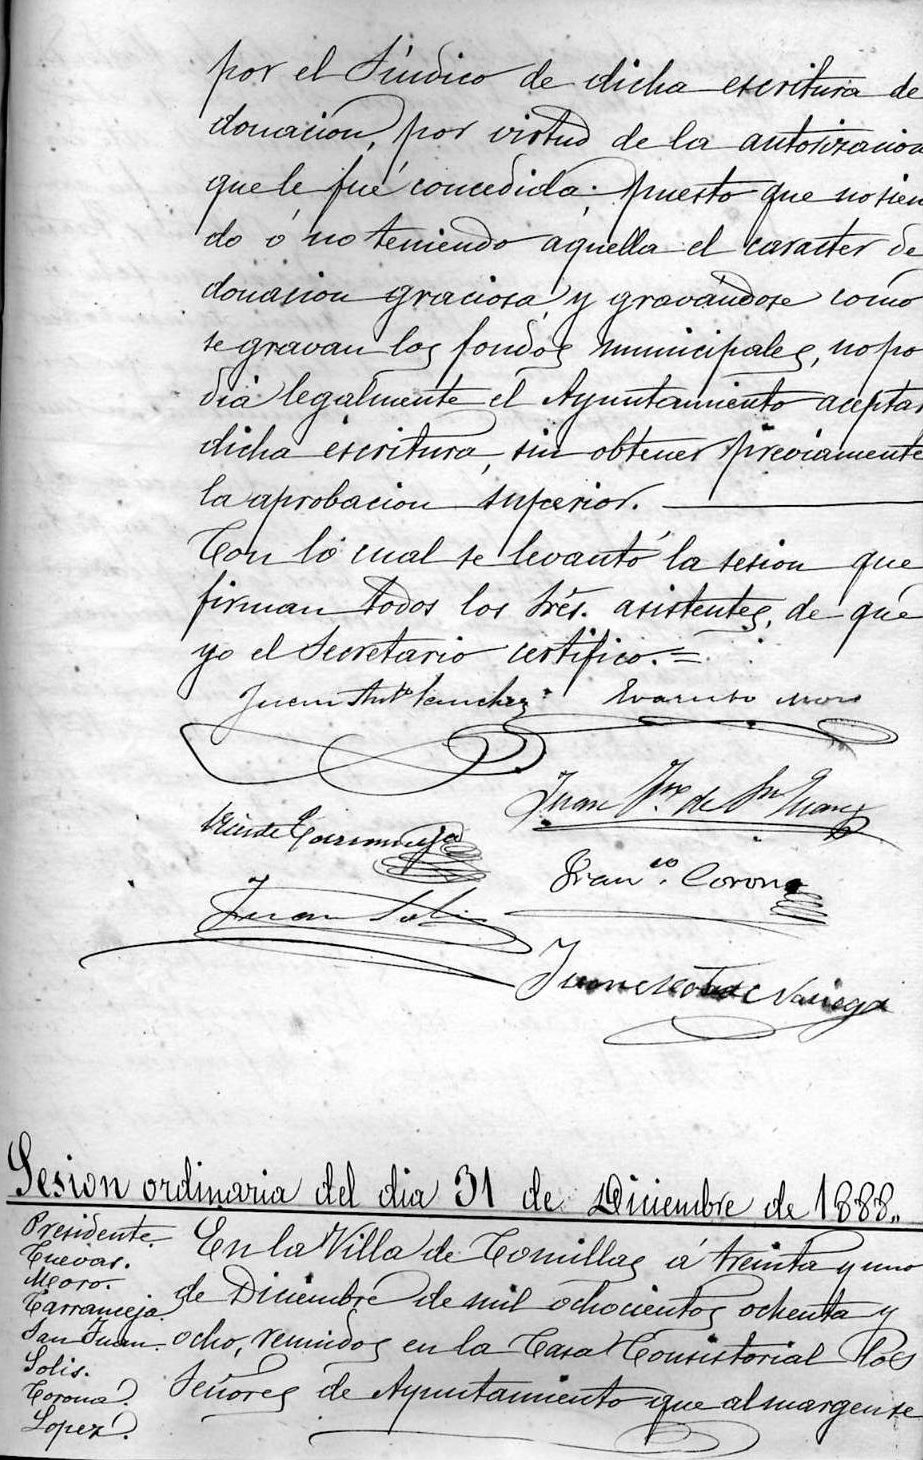 por el Síndico de dicha escritura de
donacion, por virtud de la autorizacion
que le fué concedida; puesto que no sien
do ó no teniendo aquella el caracter de
donacion graciosa, y gravándose como
se gravan los fondos municipales, no po
dia legalmente el Ayuntamiento aceptar
dicha escritura, sin obtener previamente
la aprobacion superior.
Con lo cual se levantó la sesion que
firman todos los Srés. asistentes, de que
yo el Secretario certifico.=
Juan Antº Sanchez
Evaristo Moro
Juan de Sn Juan
Vicente Carranceja
Franco. Corona
Juan Solis
Juan Noriega
Sesion ordinaria del dia 31 de Diciembre de 1888.
Presidente.
Cuevas.
Moro.
Carranceja.
San Juan.
Solis.
Corona.
Lopez.
En la Villa de Comillas á treinta y uno
de Diciembre de mil ochocientos ochenta y
ocho, reunidos en la Casa Consistorial los
Señores de Ayuntamiento que al margen se